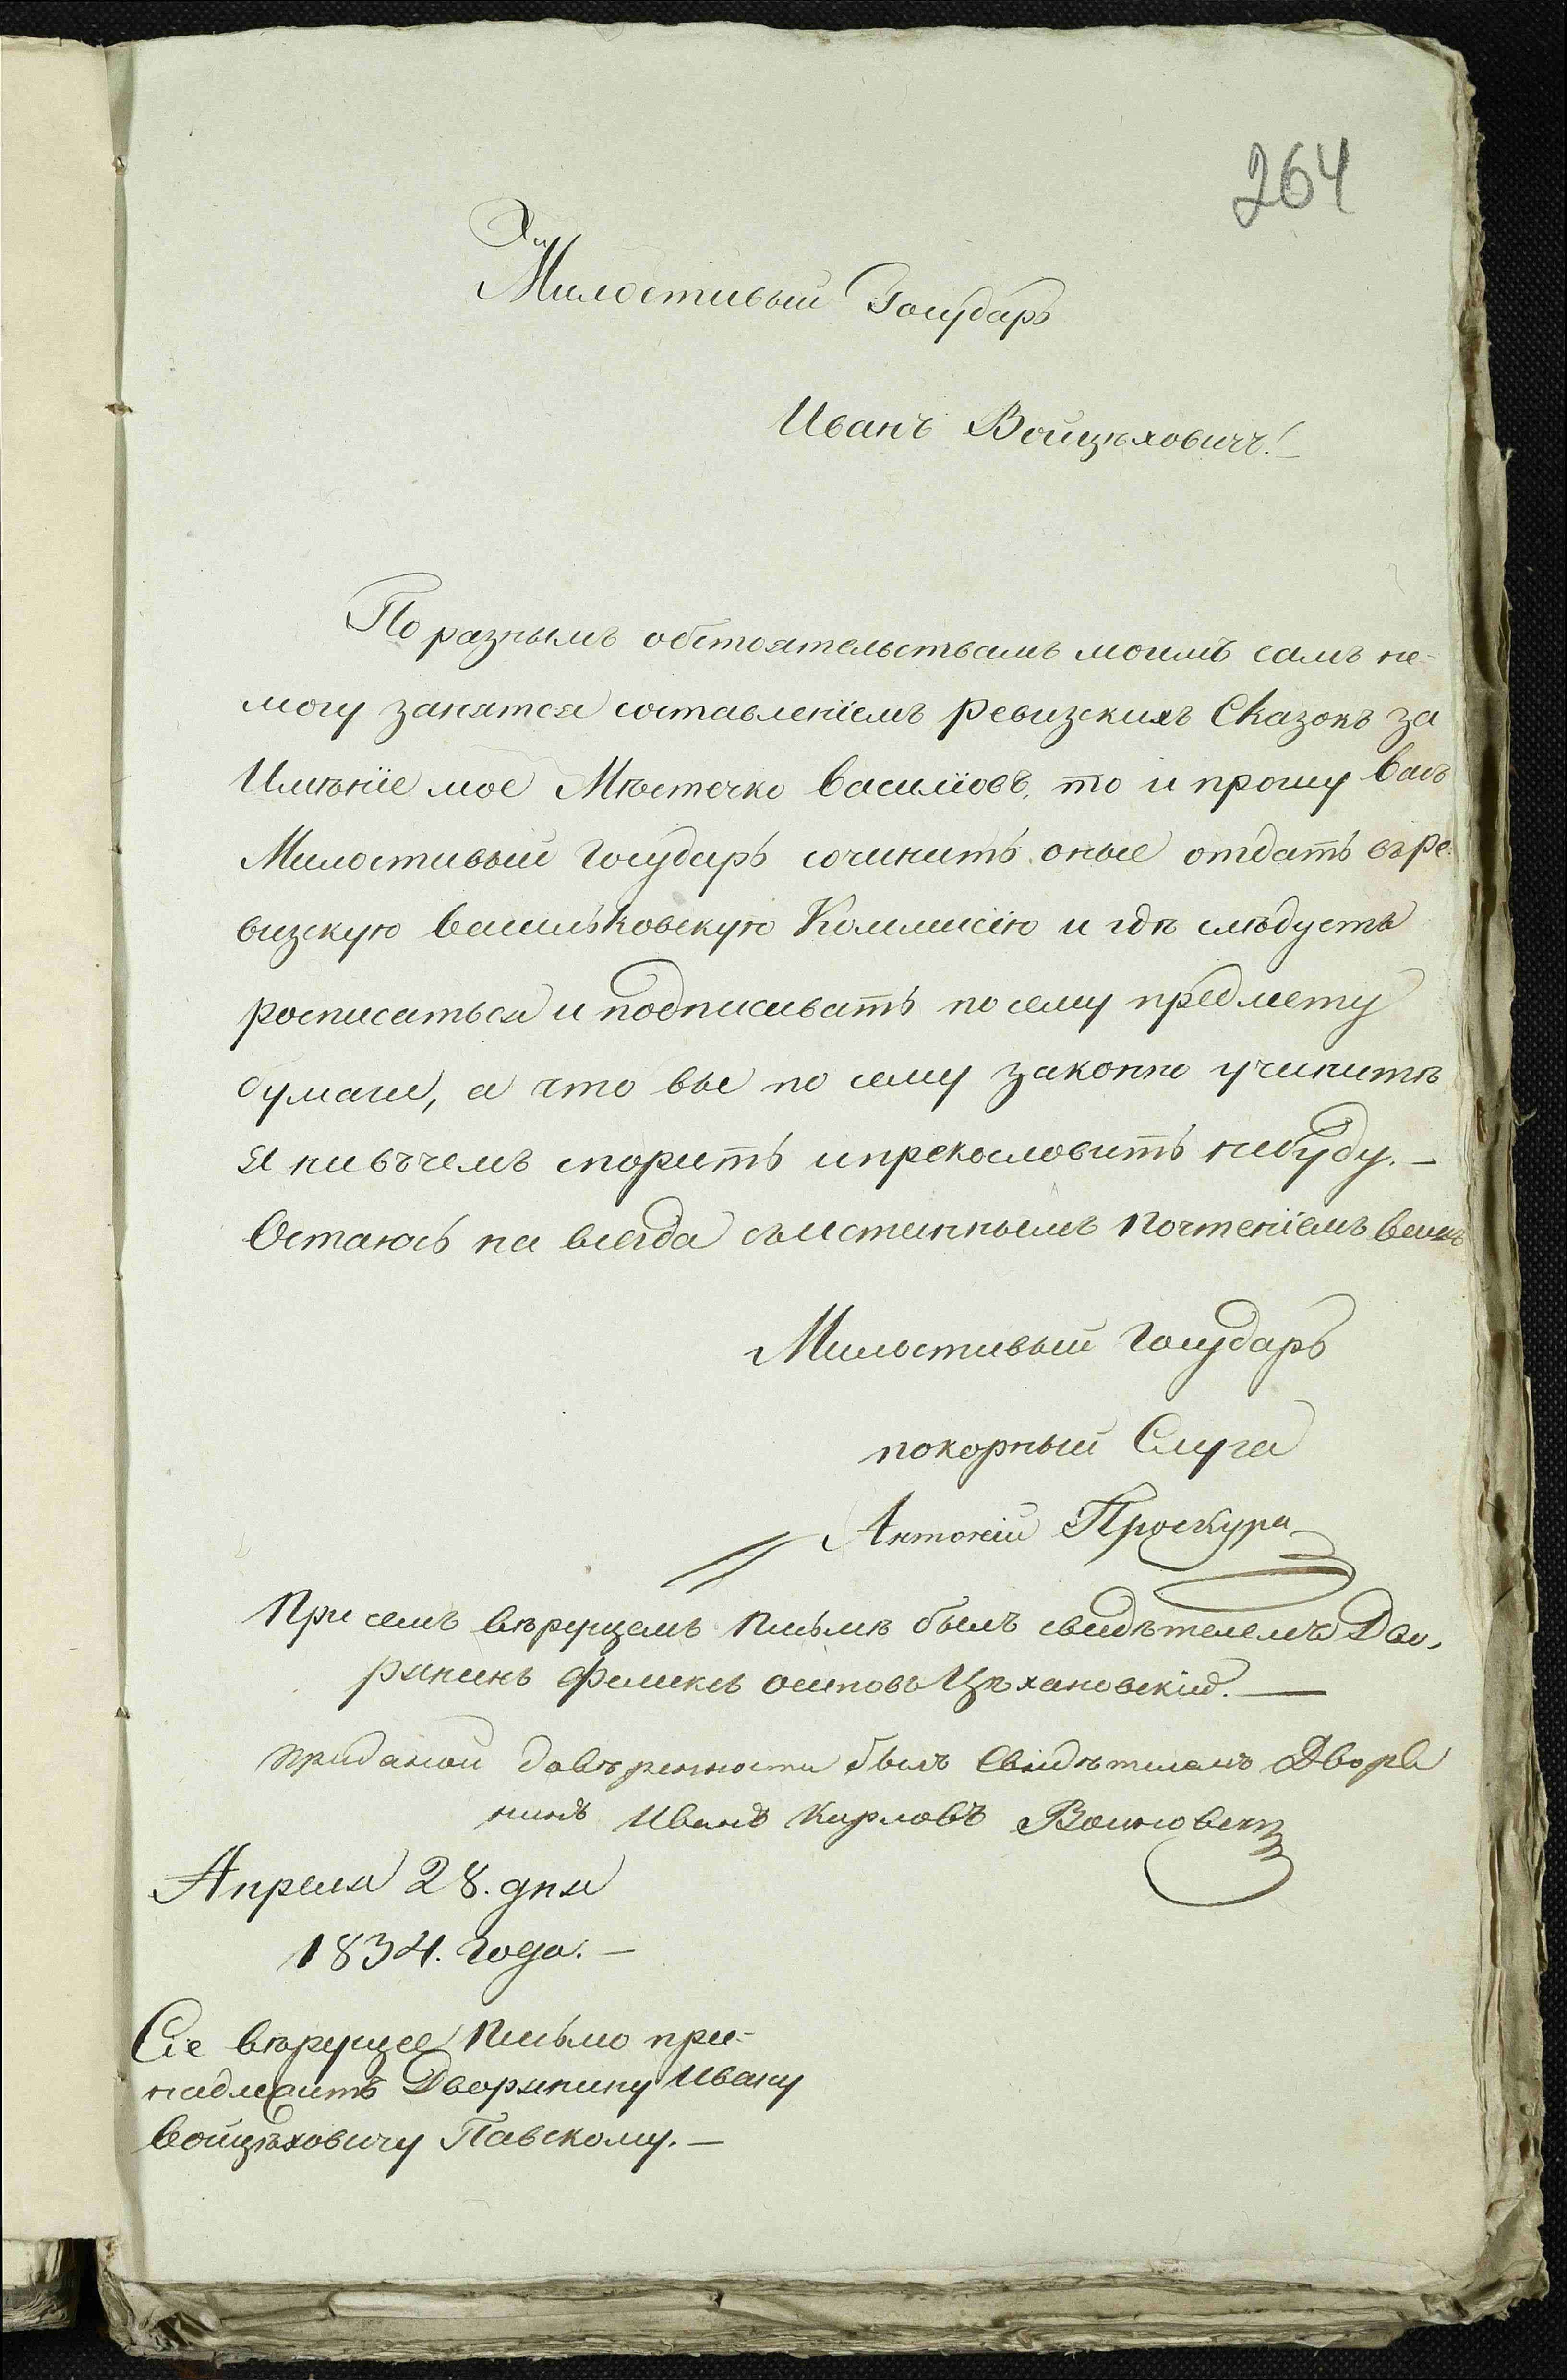 264
Милостивый Государь
Иванъ Войцѣховичъ!
По разнымъ обстоятельствамъ моимъ самъ не-
могу занятся составленіемъ ревизскихъ Сказокъ за
Имѣніе мое Мѣстечко Василіовъ, то и прошу Васъ
Милостивый Государь сочинить оные отдать въ ре-
визскую Васильковскую Коммисію и гдѣ слѣдуетъ
росписаться и подписивать по сему предмету
бумаги, а что вы по сему законно учинитѣ
я ни въ чемъ спорить и прекословить небуду. —
Остаюсь на всегда съ истиннымъ почтеніемъ вашъ
Милостивый Государь
покорный Слуга
Антоній Проскура
При семъ вѣрущемъ письмѣ былъ свидѣтелемъ Дво-
рянинъ Феликсъ Осиповъ Цѣхановскій. —
придакой давѣренности былъ Свидѣтиламъ Дворя
нинъ Иванъ Карловъ
Апреля 28. дня
1834. года. —
Сіе вѣрущее письмо при-
надлежитъ Дворянину Ивану
Войцѣховичу Павскому. —